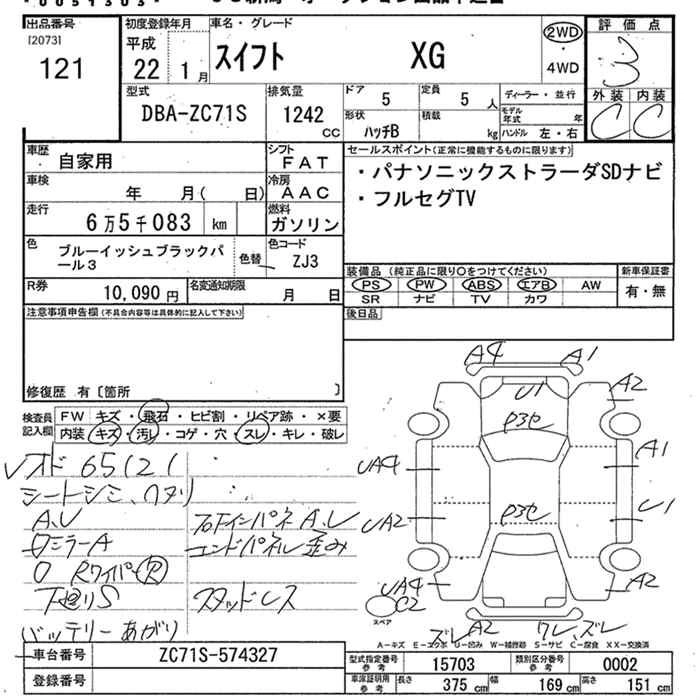 出品番号
[2073]
121
初度登録年月
平成
22 1 月
車名・グレード
スイフト XG
2WD
4WD
評価点
3
外装 内装
C C
型式
DBA-ZC71S
排気量
1242
CC
ドア
5
定員
5 人
形状
ハッチB
積載
kg
ディーラー・並行
モデル年式 年
ハンドル 左・右
車歴
自家用
シフト
FAT
車検
年 月( 日)
冷房
AAC
走行
6万5千083 km
燃料
ガソリン
色
ブルーイッシュブラックパ
ール3
色替
色コード
ZJ3
R券
10,090 円
名変通知期限
月 日
セールスポイント(正常に機能するものに限ります)
・パナソニックストラーダSDナビ
・フルセグTV
装備品 (純正品に限り○をつけてください)
PS PW ABS エアB AW
SR ナビ TV カワ
新車保証書
有・無
後日品
注意事項申告欄(不具合内容等は具体的に記入して下さい)
修復歴 有〔箇所 〕
検査員
記入欄
FW キズ・飛石・ヒビ割・リペア跡・×要
内装 キズ・汚し・コゲ・穴・スレ・キレ・破レ
オド 65121
シートシミ、ヘタリ
A、U
ロミラーA
Rワイパー R
下廻りS
バッテリーあがり
インパネA、レ
エンドパネル歪み
スタッドレス
A4 A1
U1
A2
P3セ
UA4
A1
UA2
P3セ
U1
UA4
C2
A2
スペア
ズレ A2 ワレ、ズレ
A-キズ E-エクボ U-凹み W-補修跡 S-サビ C-腐食 XX-交換済
車台番号
ZC71S-574327
登録番号
型式指定番号
参考
15703
類別区分番号
参考
0002
車庫証明用
参考
長さ 375 cm 幅 169 cm 高さ 151 cm